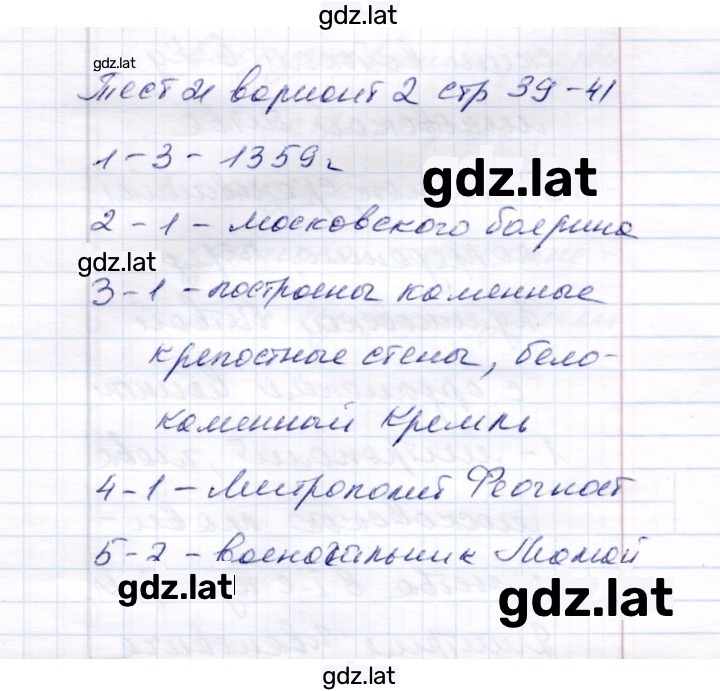 gdz.lat
gdz.lat
Тест 21 вариант 2 стр 39-41
1-3-1359г
gdz.lat
2-1-московского боярина
gdz.lat
3-1-построены каменные
крепостные стены, бело-
каменный Кремль
4-1-Митрополит Феогност
5-2-военачальник Мамай
gdz.lat
gdz.lat
gdz.lat